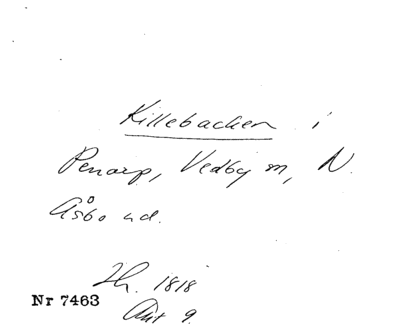 Killebacken i
Penarp, Vedby sn, N.
Åsbo hd.
Lh. 1818
Akt 9.
Nr 7463